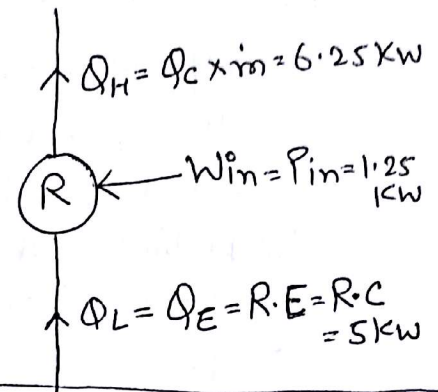 Q_H = Q_C × ṁ = 6.25 KW
R
Win = Pin = 1.25
KW
Q_L = Q_E = R.E = R.C
= 5 KW